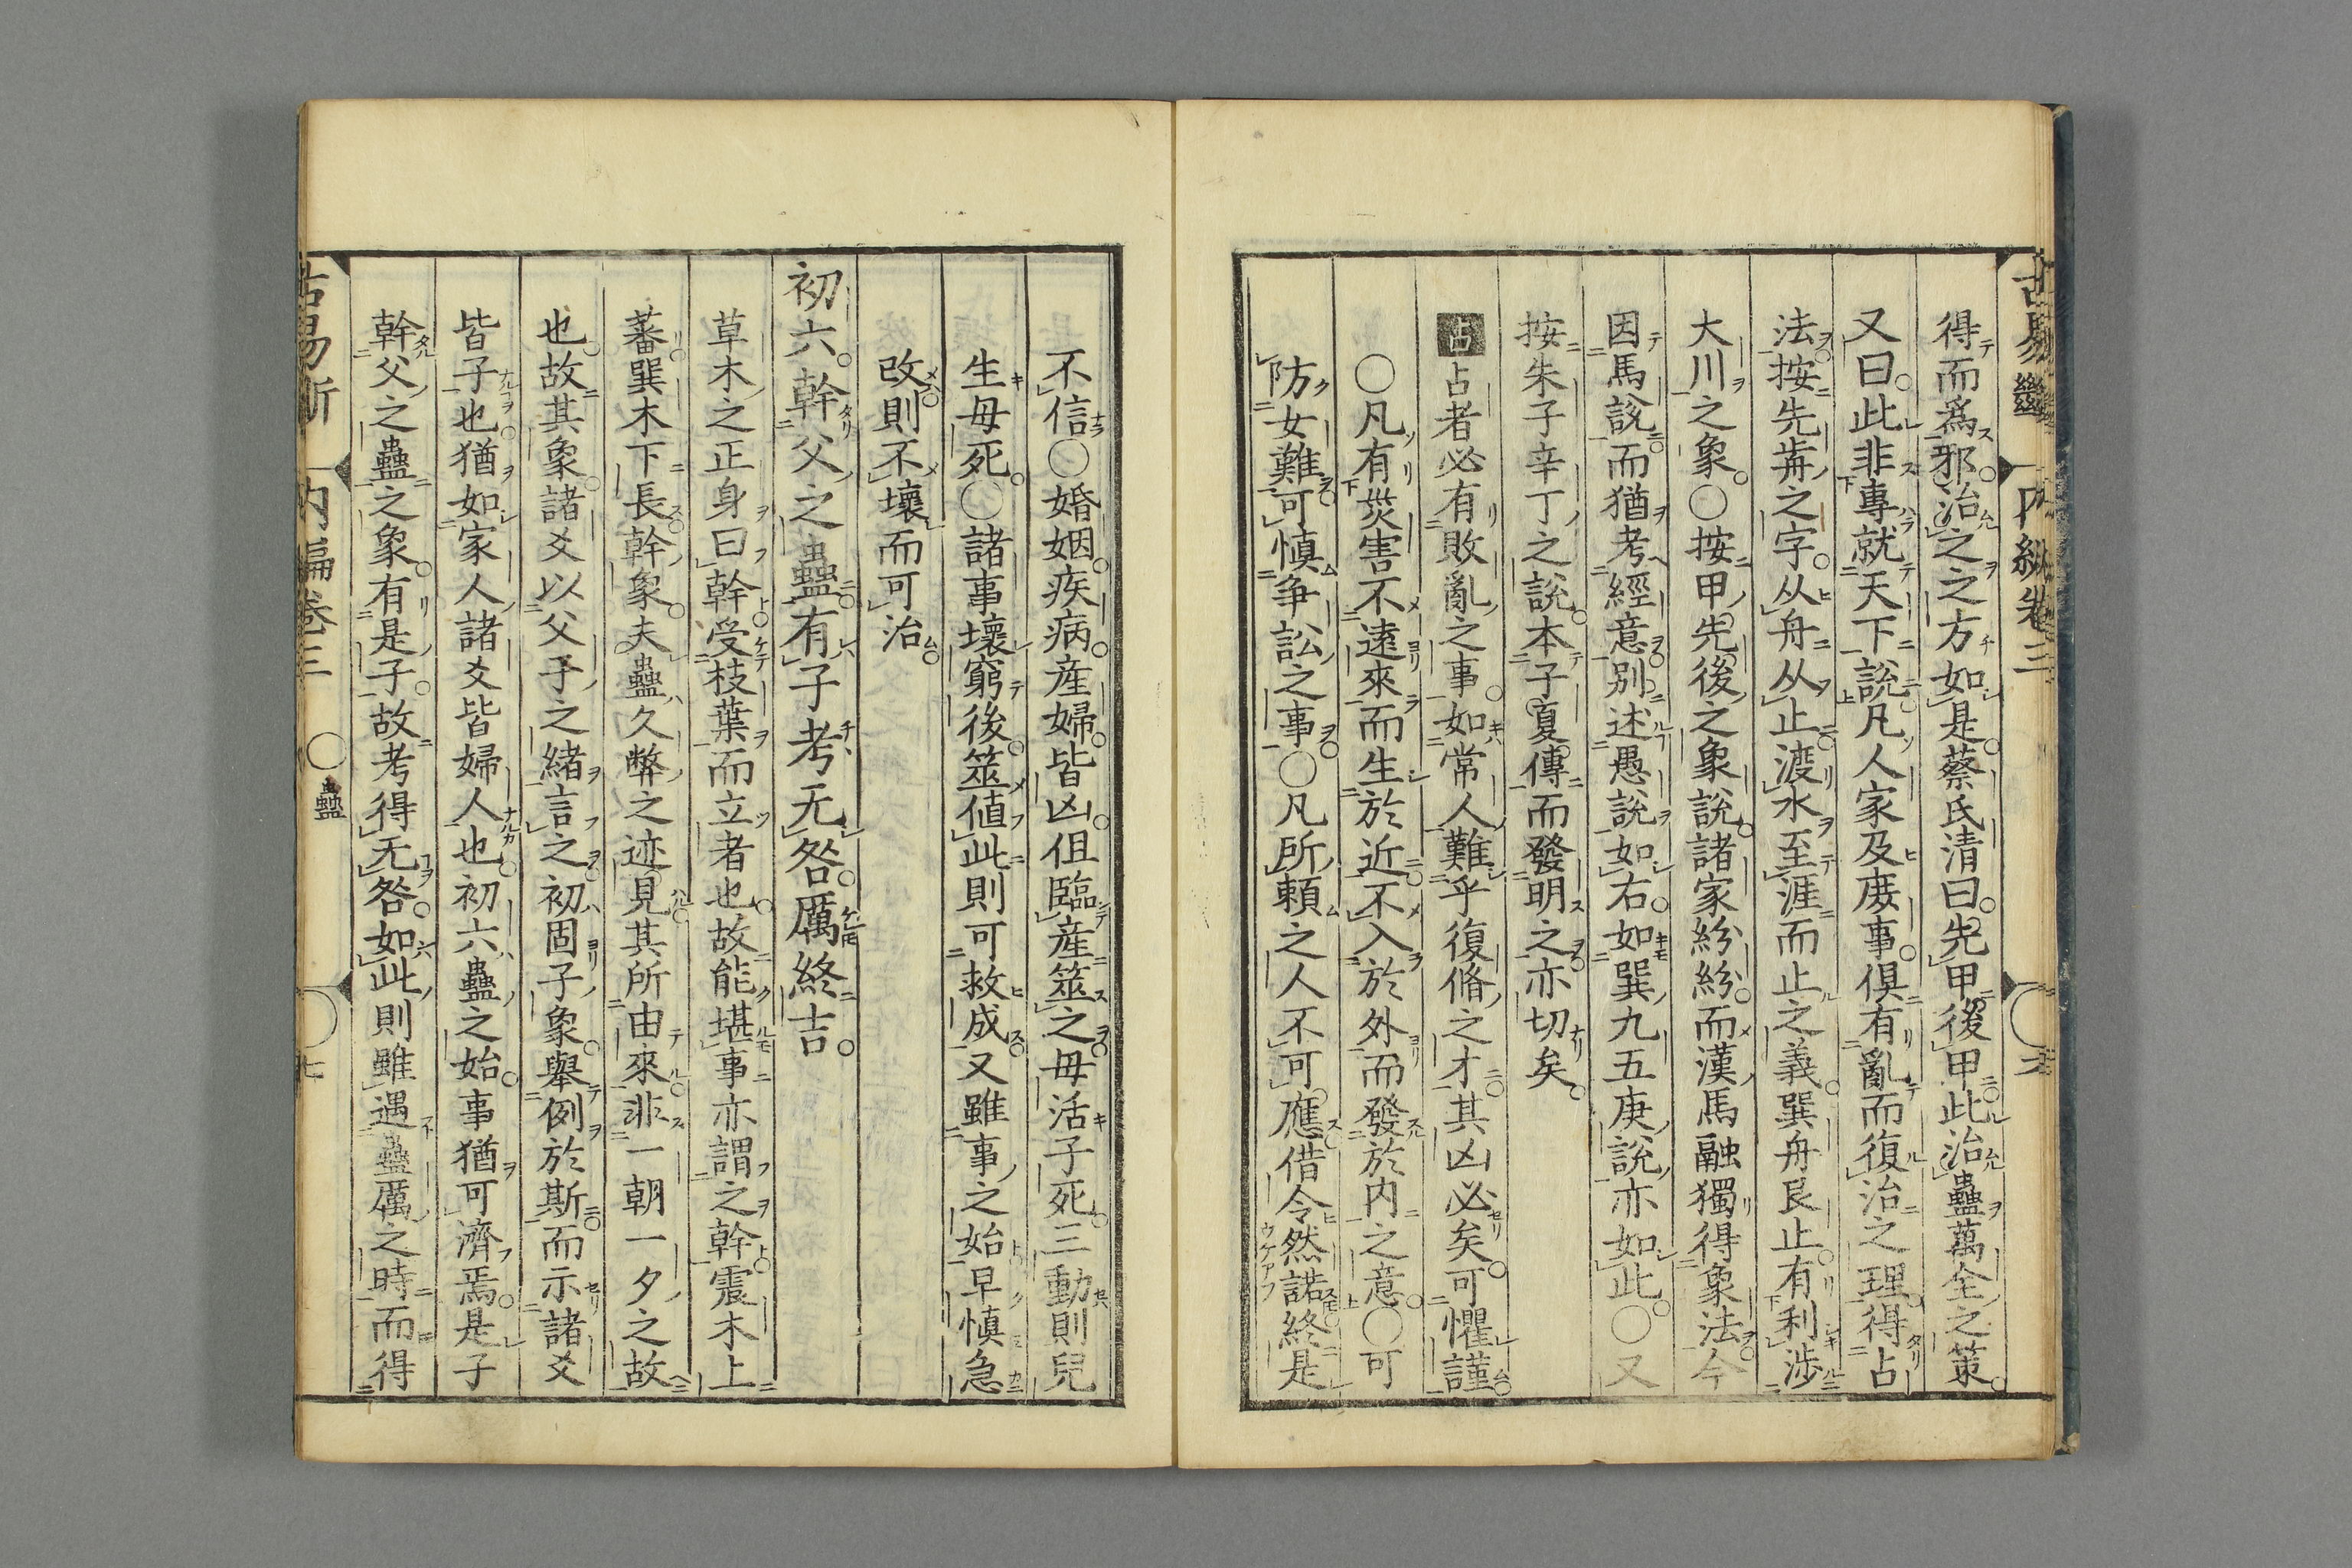 得而爲邪治之之方如是蔡氏清曰先甲後甲此治蠱萬全之策
又曰此非專就天下說凡人家及庻事俱有亂而復治之理得占
法按先歬之字从舟从止渡水至涯而止之義巽舟艮止有利渉
大川之象○按甲先後之象說諸家紛紛而漢馬融獨得象法今
因馬說而猶考經意別述愚說如右如巽九五庚說亦如此○又
按朱子辛丁之說本子夏傳而發明之亦切矣
占占者必有敗亂之事如常人難乎復脩之才其凶必矣可懼謹
○凡有災害不遠來而生於近不入於外而發於内之意○可
防女難可慎爭訟之事○凡所頼之人不可應借令然諾終是
不信○婚姻疾病産婦皆凶但臨産筮之毋活子死三動則兒
生毋死○諸事壞窮後筮値此則可救成又雖事之始早慎急
改則不壞而可治
初六幹父之蠱有子考无咎厲終吉
草木之正身曰幹受枝葉而立者也故能堪事亦謂之幹震木上
蕃巽木下長幹象夫蠱久弊之迹見其所由來非一朝一夕之故
也故其象諸爻以父子之緒言之初固子象舉例於斯而示諸爻
皆子也猶如家人諸爻皆婦人也初六蠱之始事猶可濟焉是子
幹父之蠱之象有是子故考得无咎如此則雖遇蠱厲之時而得
古易斷 内編卷三 ○蠱 七